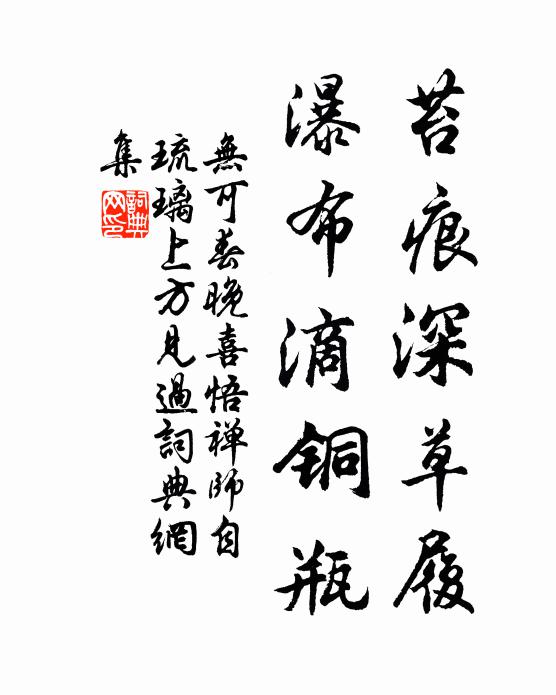 苔痕深草履
瀑布滴铜瓶
無可春晚喜悟禅師自
琉璃上方見過詞典網
集
詞典网印